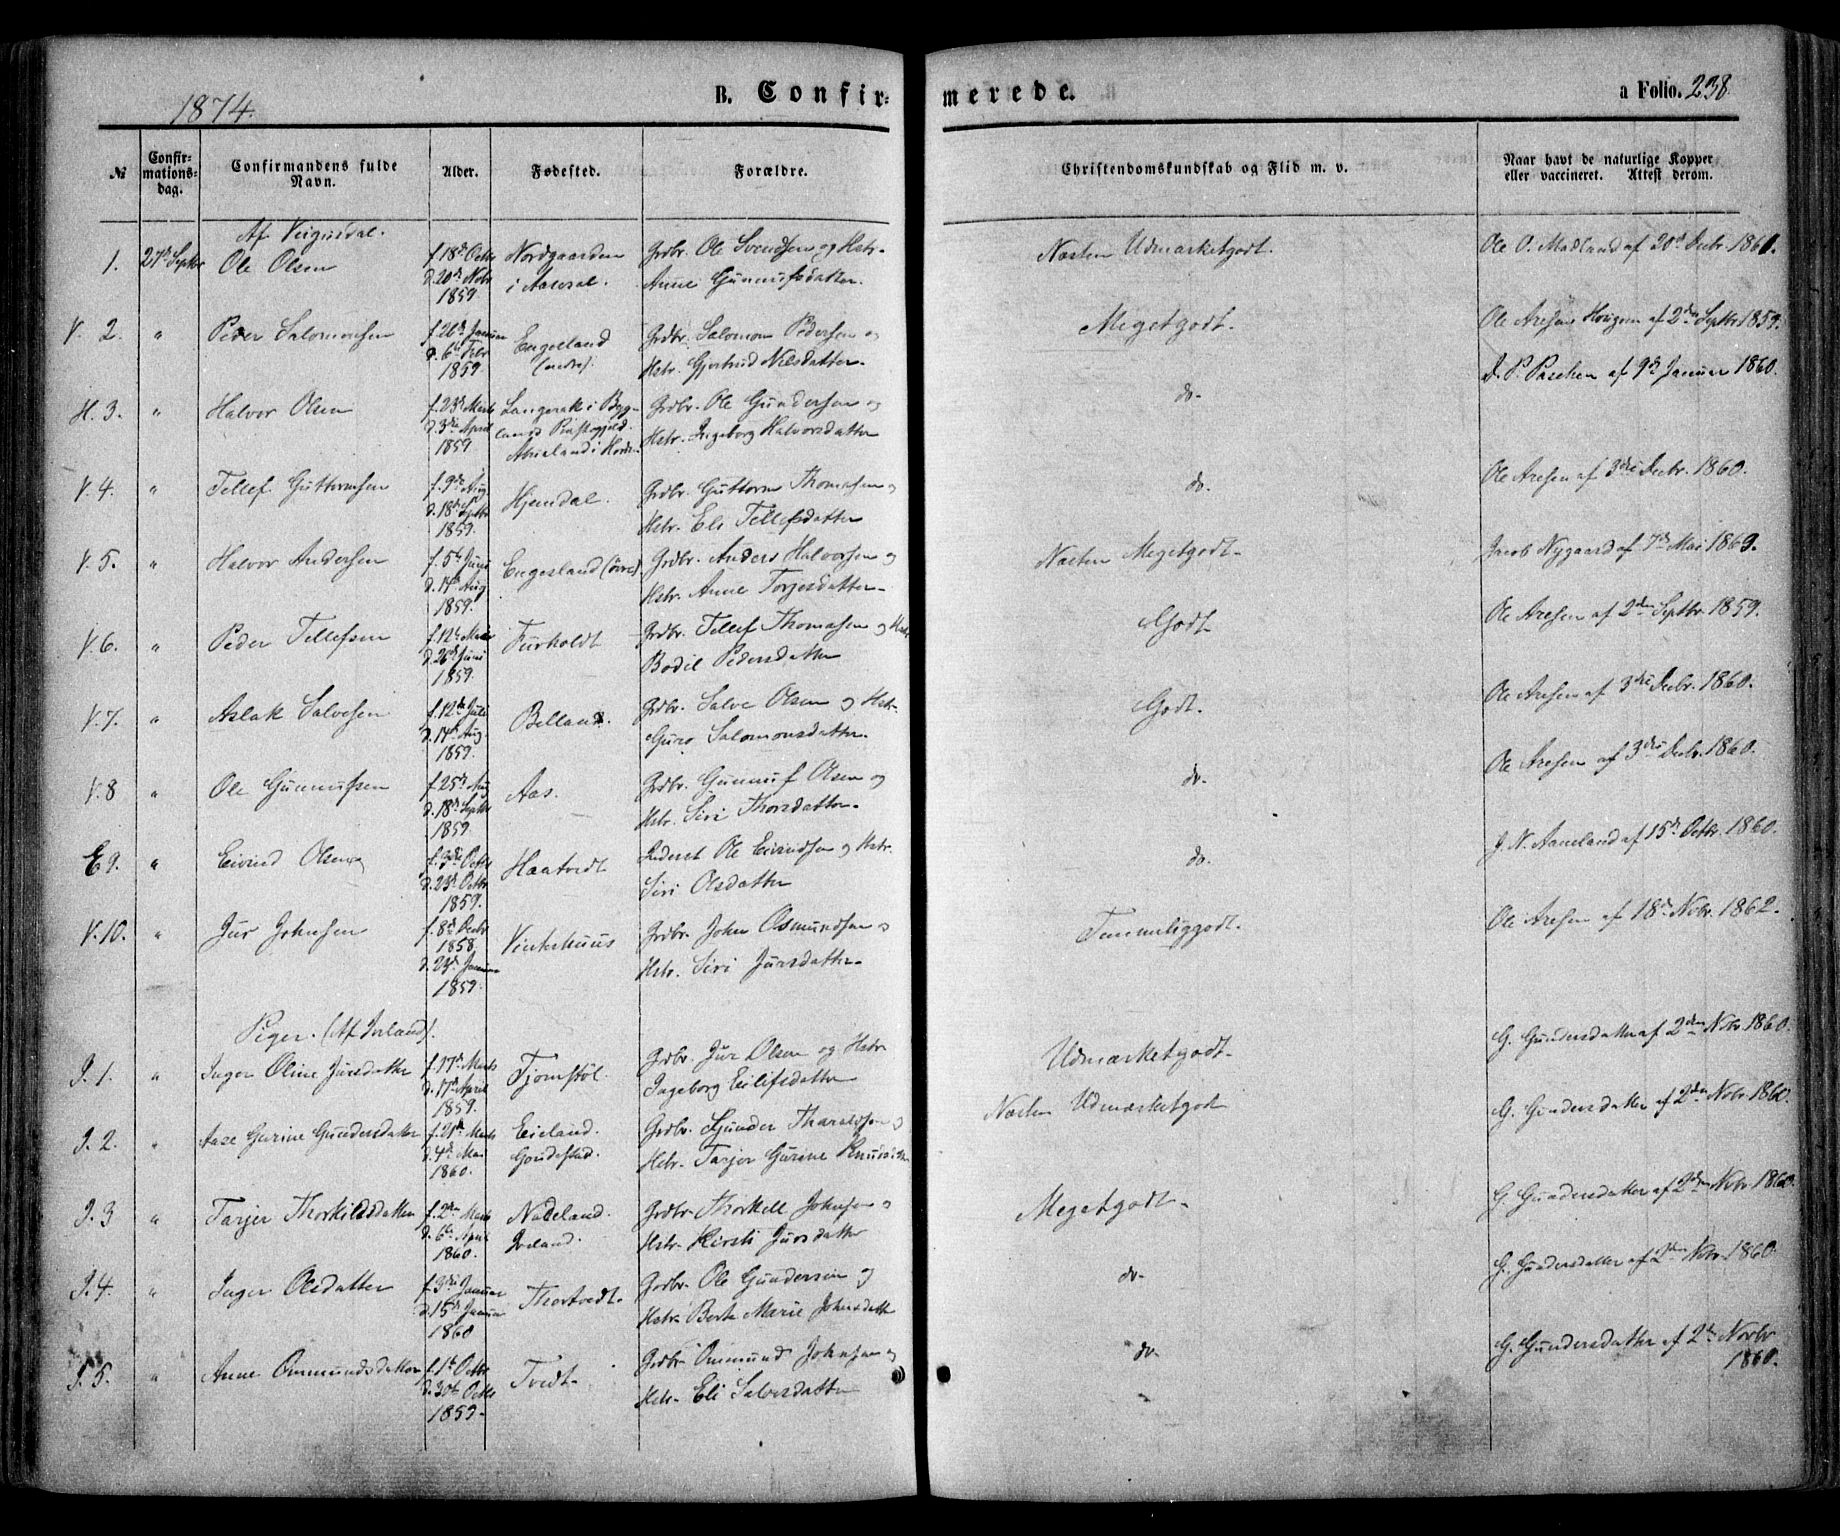 1874.
B. Confir-
merede.
a Folio. 238
№
Confir-
mations-
dag.
Confirmandens fulde
Navn.
Alder.
Fødested.
Forældre.
Christendomskundskab og Flid m. v.
Naar havt de naturlige Kopper
eller vaccineret. Attest derom.
Af Veigusdal.
1. 27de Septbr Ole Olsen f. 18de Octbr d. 20de Nvbr 1859 Nordgaarden i Aaseral. Grdbr. Ole Svendsen og Hstr. Anne Gunnufsdatter. Næsten Udmærketgodt. Ole O. Madland af 20de Decbr. 1860.
V. 2. " Peder Salomonsen f. 26de Januar d. 6te Febr 1859 Engesland (nedre). Grdbr. Salomon Pedersen og Hstr. Gjertrud Nilsdatter. Megetgodt. Ole Aresen Horigmo af 2den Septbr 1859.
H. 3. " Halvor Olsen f. 23de Marts d. 3die April 1859 Langerak i Byglands Præstegjeld. Grdbr. Ole Gundersen og Hstr. Ingeborg Halvorsdatter do. D. P. Paschen af 9de Januar 1860.
V. 4. " Tellef Guttormsen f. 9de Aug d. 18de Septbr 1859. Hjemdal. Grdbr. Guttorm Thomasen og Hstr. Eli Tellefsdatter do. Ole Aresen af 3die Decbr. 1860.
V. 5. " Halvor Andersen f. 5te Juni d. 14de Aug 1859. Engesland (övre). Grdbr. Anders Halvorsen og Hstr. Anne Torjesdatter. Næsten Megetgodt. Jacob Nygaard af 7de Mai 1863.
V. 6. " Peder Tellefsen f. 12te d. 26de Juni 1859. Furholdt Grdbr. Tellef Thomasen og Hstr. Bodil Pedersdatter Godt Ole Aresen af 2den Septbr 1859.
V. 7. " Aslak Salvesen f. 12te Juli d. 14de Aug 1859. Belland. Grdbr. Salve Olsen og Hstr. Guro Salomonsdatter. Godt. Ole Aresen af 3die Decbr. 1860.
V. 8 " Ole Gunnufsen f. 25de Aug d. 18de Septbr 1859. Aas. Grdbr. Gunnuf Olsen og Hstr. Siri Thorsdatter. do. Ole Aresen af 3die Decbr. 1860.
E 9. " Eivind Olsen f. 3die Octbr d. 23de Octbr 1859. Haatvedt Inderst Ole Eivindsen og Hstr. Siri Olsdatter do. J. N. Aaneland af 15de Octbr. 1860.
V. 10. " Jur Johnsen f. 8de Decbr 1858. d. 23de Januar 1859. Vinterhuus Grdbr. John Osmundsen og Hstr. Siri Jursdatter. Temmeliggodt. Ole Aresen af 18de Novbr. 1862.
Piger. (Af Iveland).
I. 1. " Inger Oline Jursdatter f. 17de Marts d. 17de April 1859. Tjomstöl. Grdbr. Jur Olsen og Hstr Ingeborg Eilifsdatter Udmærketgodt. G. Gundersdatter af 2den Nvbr 1860.
I. 2. " Aase Gurine Gundersdatter f. 21de Marts d. 4de Mai 1860. Eieland. Grdbr. Gunder Tharaldsen og Hstr. Tarjer Gurine Knudsdatter Næsten Udmærketgodt G. Gundersdatter af 2den Nvbr 1860.
I. 3 " Tarjer Thorkildsdatter f. 2den Marts d. 6te April 1860. Nateland. Iveland. Grdbr. Thorkell Johnsen og Hstr. Kirsti Jursdatter Megetgodt. G. Gundersdatter af 2den Nvbr 1860.
I. 4. " Inger Olsdatter f. 3die Januar d. 15de Januar 1860 Thortvedt. Grdbr. Ole Gundersen og Hstr. Berte Marie Johnsdatter do. G. Gundersdatter af 2den Nvbr. 1860
I. 5. " Anne Ommundsdatter f. 1te Octbr d. 30te Octbr 1859. Tvedt. Grdbr Ommund Johnsen og Hstr. Eli Salvesdatter do. G. Gundersdatter af 2den Novbr 1860.